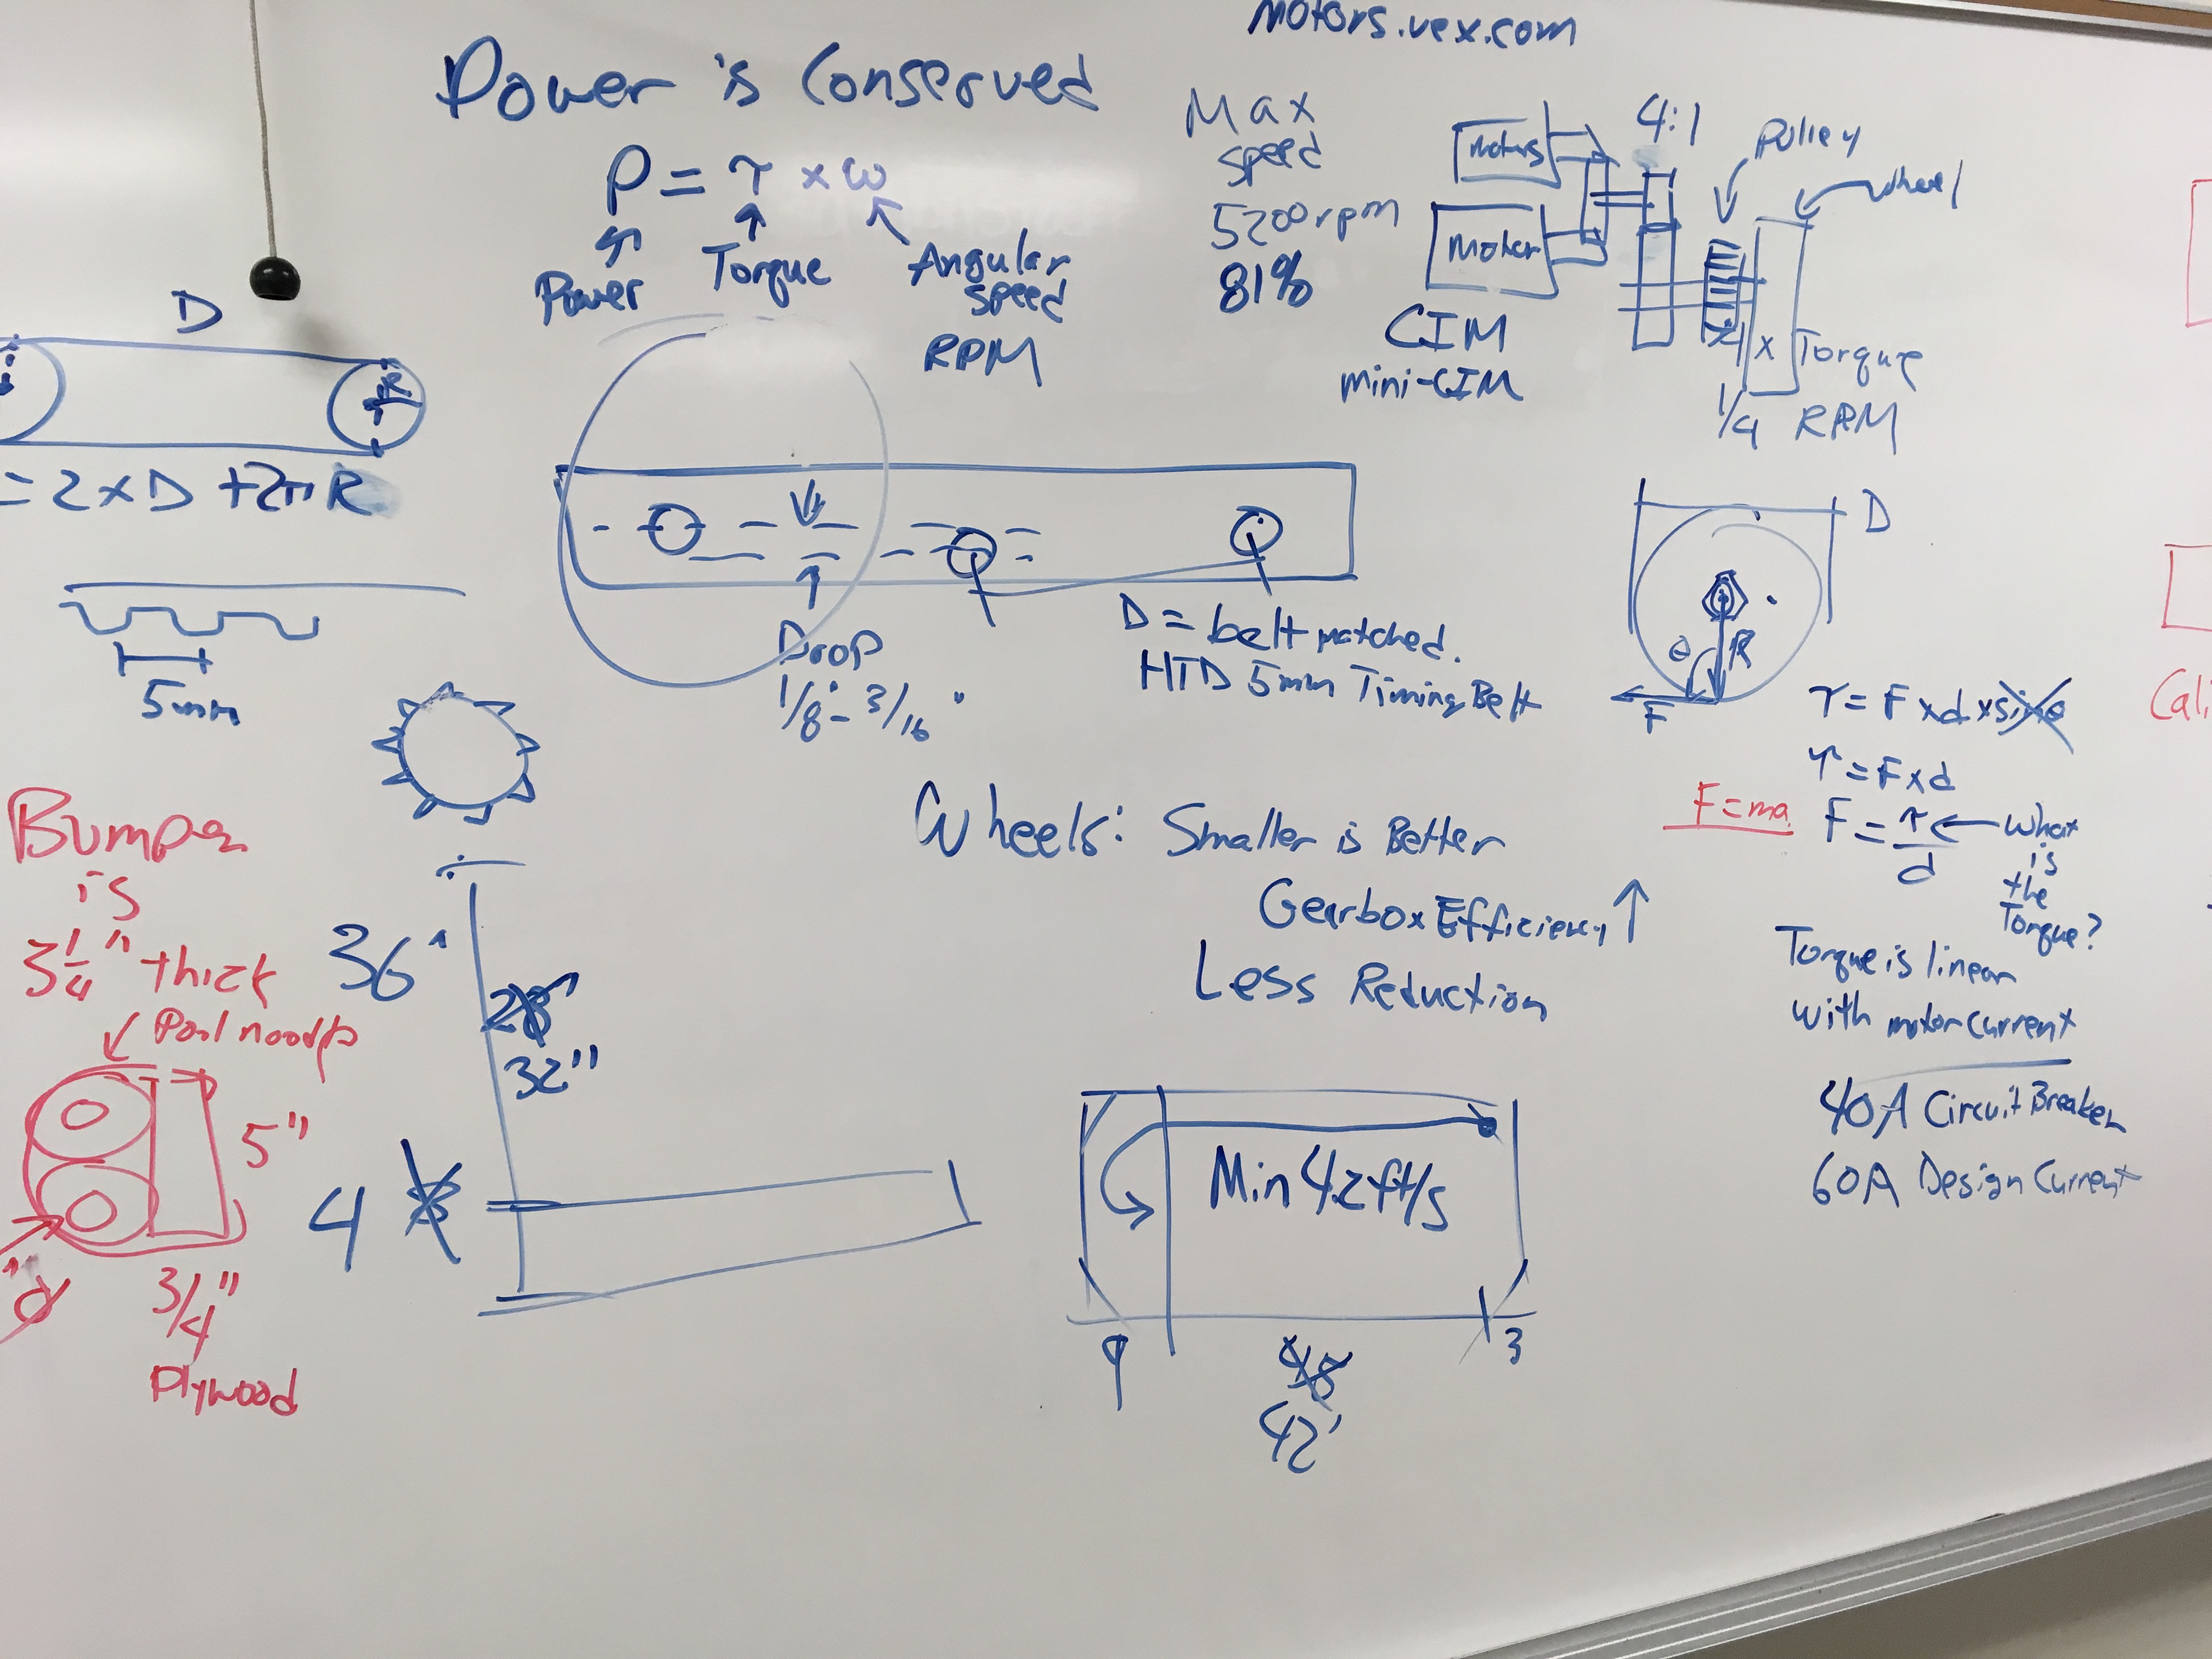 motors.vex.com
Power is Conserved
P = τ × ω
Power
Torque
Angular
speed
RPM
Max
speed
5200rpm
81%
Motors
Motor
CIM
mini-CIM
4:1
Pulley
wheel
4 x Torque
1/4 RPM
D
R
= 2 x D + 2π R
5mm
Drop
1/8" - 3/16"
D = belt matched.
HTD 5mm Timing Belt
D
θ
R
F
τ = F x d x sin θ
τ = F x d
F = ma
F = τ/d
What
is
the
Torque?
Torque is linear
with motor current
40A Circuit Breaker
60A Design Current
Wheels: Smaller is Better
Gearbox Efficiency ↑
Less Reduction
Bumper
is
3 1/4" thick
Pool noodle
5"
3/4"
Plywood
36"
28"
32"
4
Min 4.2ft/s
9
3
48
42'
Cali